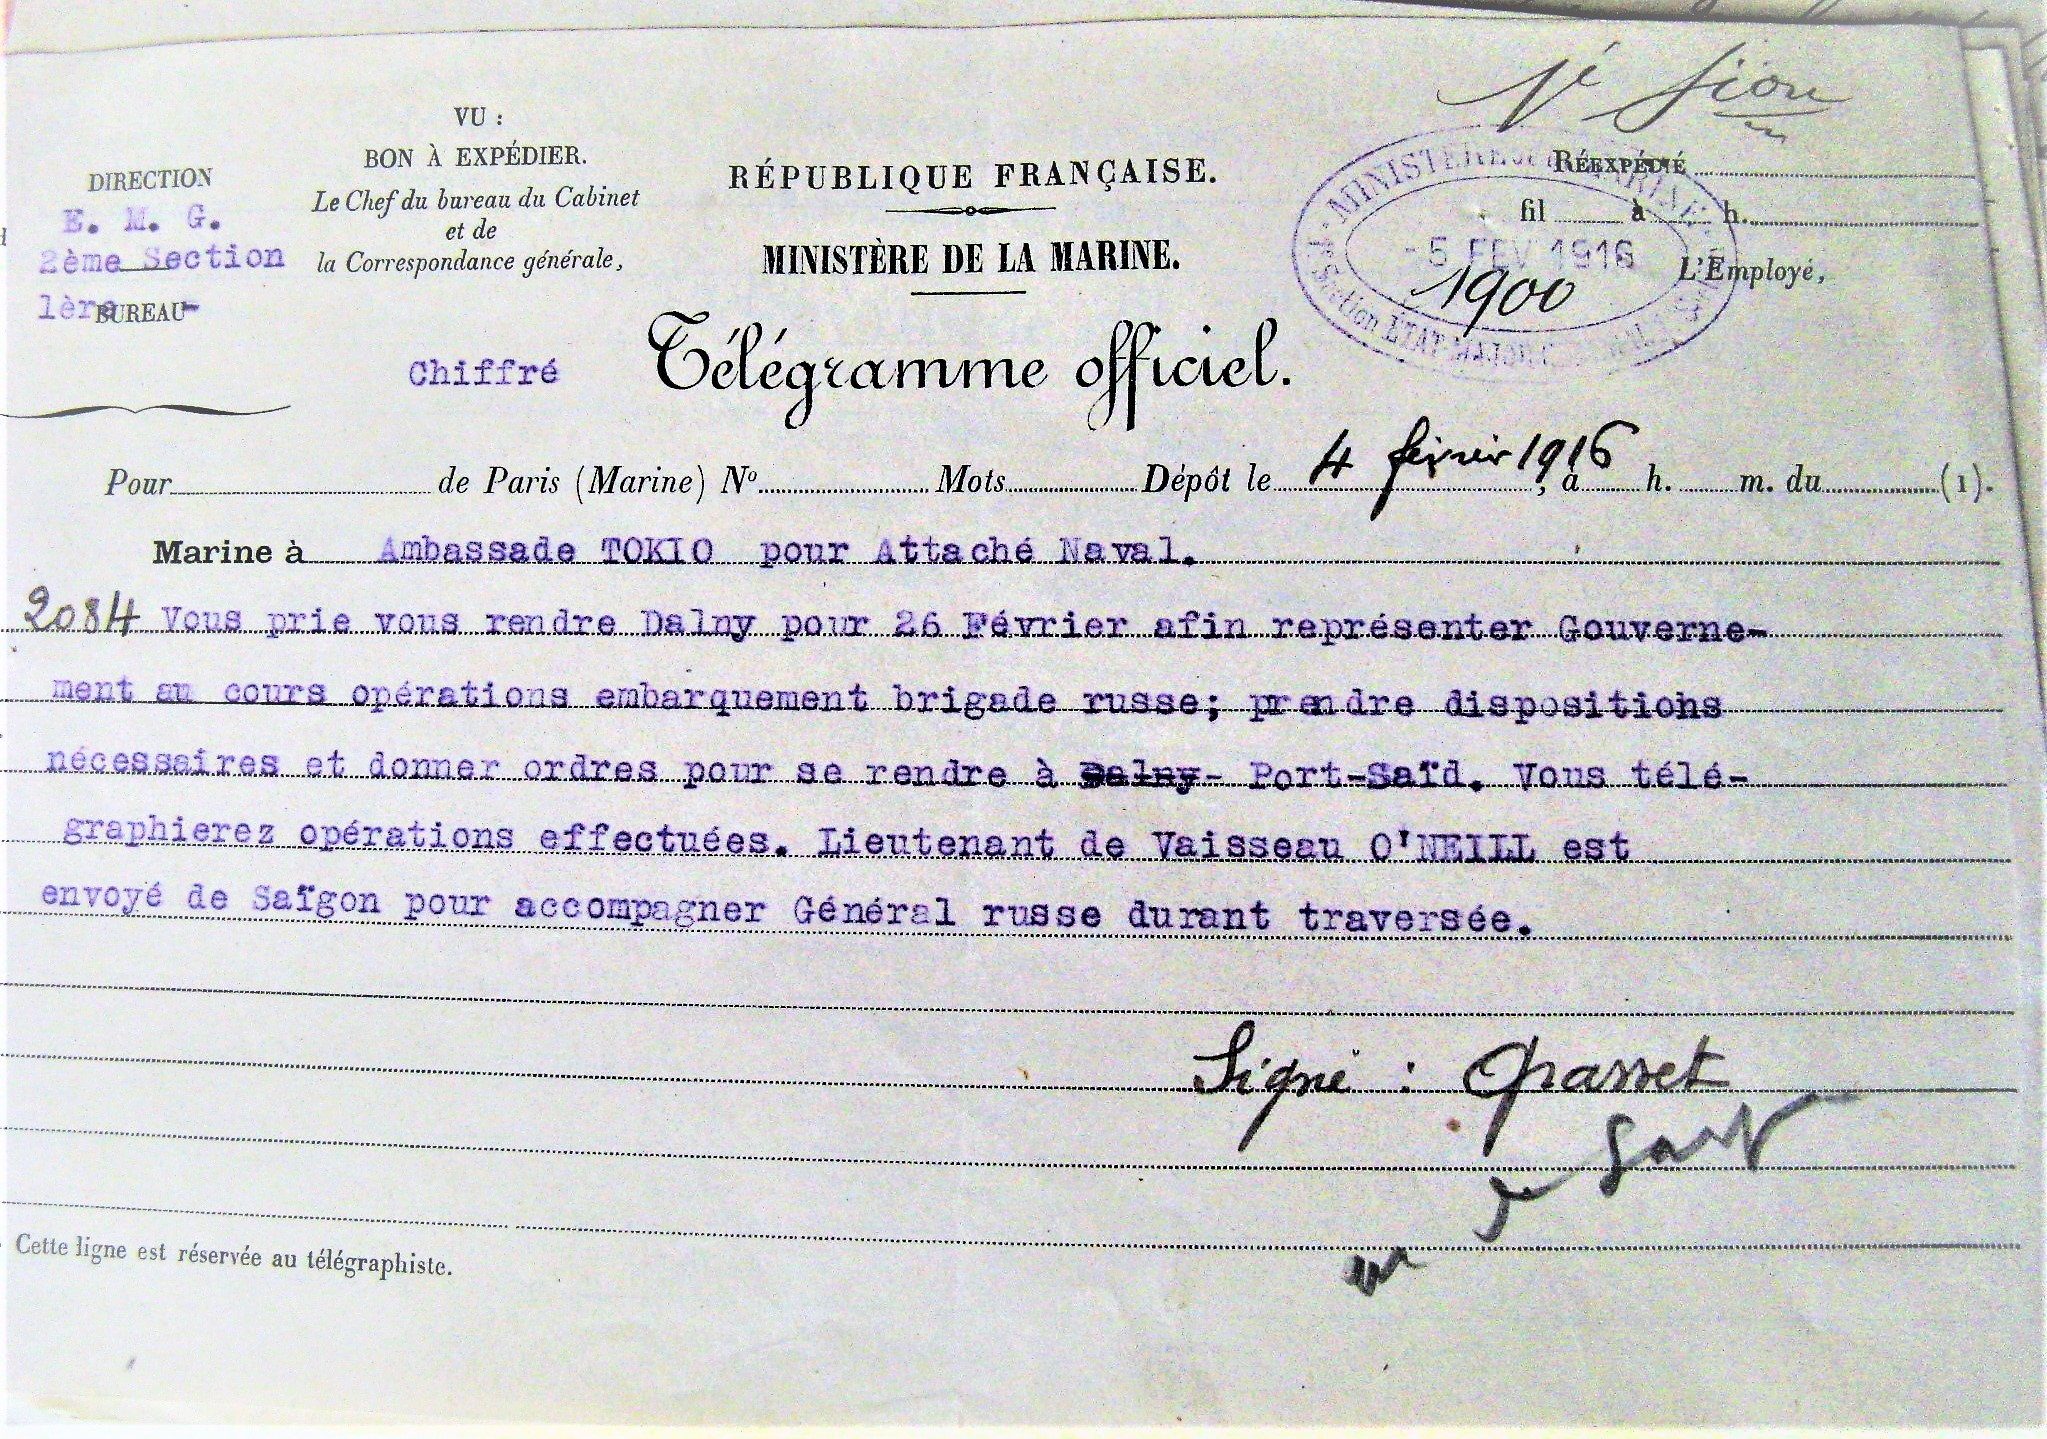 1è Son
VU :
BON À EXPÉDIER.
Le Chef du bureau du Cabinet
et de
la Correspondance générale,
DIRECTION
E. M. G.
2ème Section
1ère BUREAU -
Chiffré
RÉPUBLIQUE FRANÇAISE.
MINISTÈRE DE LA MARINE.
Télégramme officiel.
RÉEXPÉDIÉ
fil à h.
L'Employé,
MINISTÈRE DE LA MARINE
- 5 FEV 1916
1900
Section ETAT-MAJOR
Pour de Paris (Marine) N° Mots Dépôt le 4 février 1916, à h. m. du (1).
Marine à Ambassade TOKIO pour Attaché Naval.
2084 Vous prie vous rendre Dalny pour 26 Février afin représenter Gouverne-
ment au cours opérations embarquement brigade russe; prendre dispositions
nécessaires et donner ordres pour se rendre à Dalny- Port-Saïd. Vous télé-
graphierez opérations effectuées. Lieutenant de Vaisseau O'NEILL est
envoyé de Saïgon pour accompagner Général russe durant traversée.
Signé : Grasset
Cette ligne est réservée au télégraphiste.